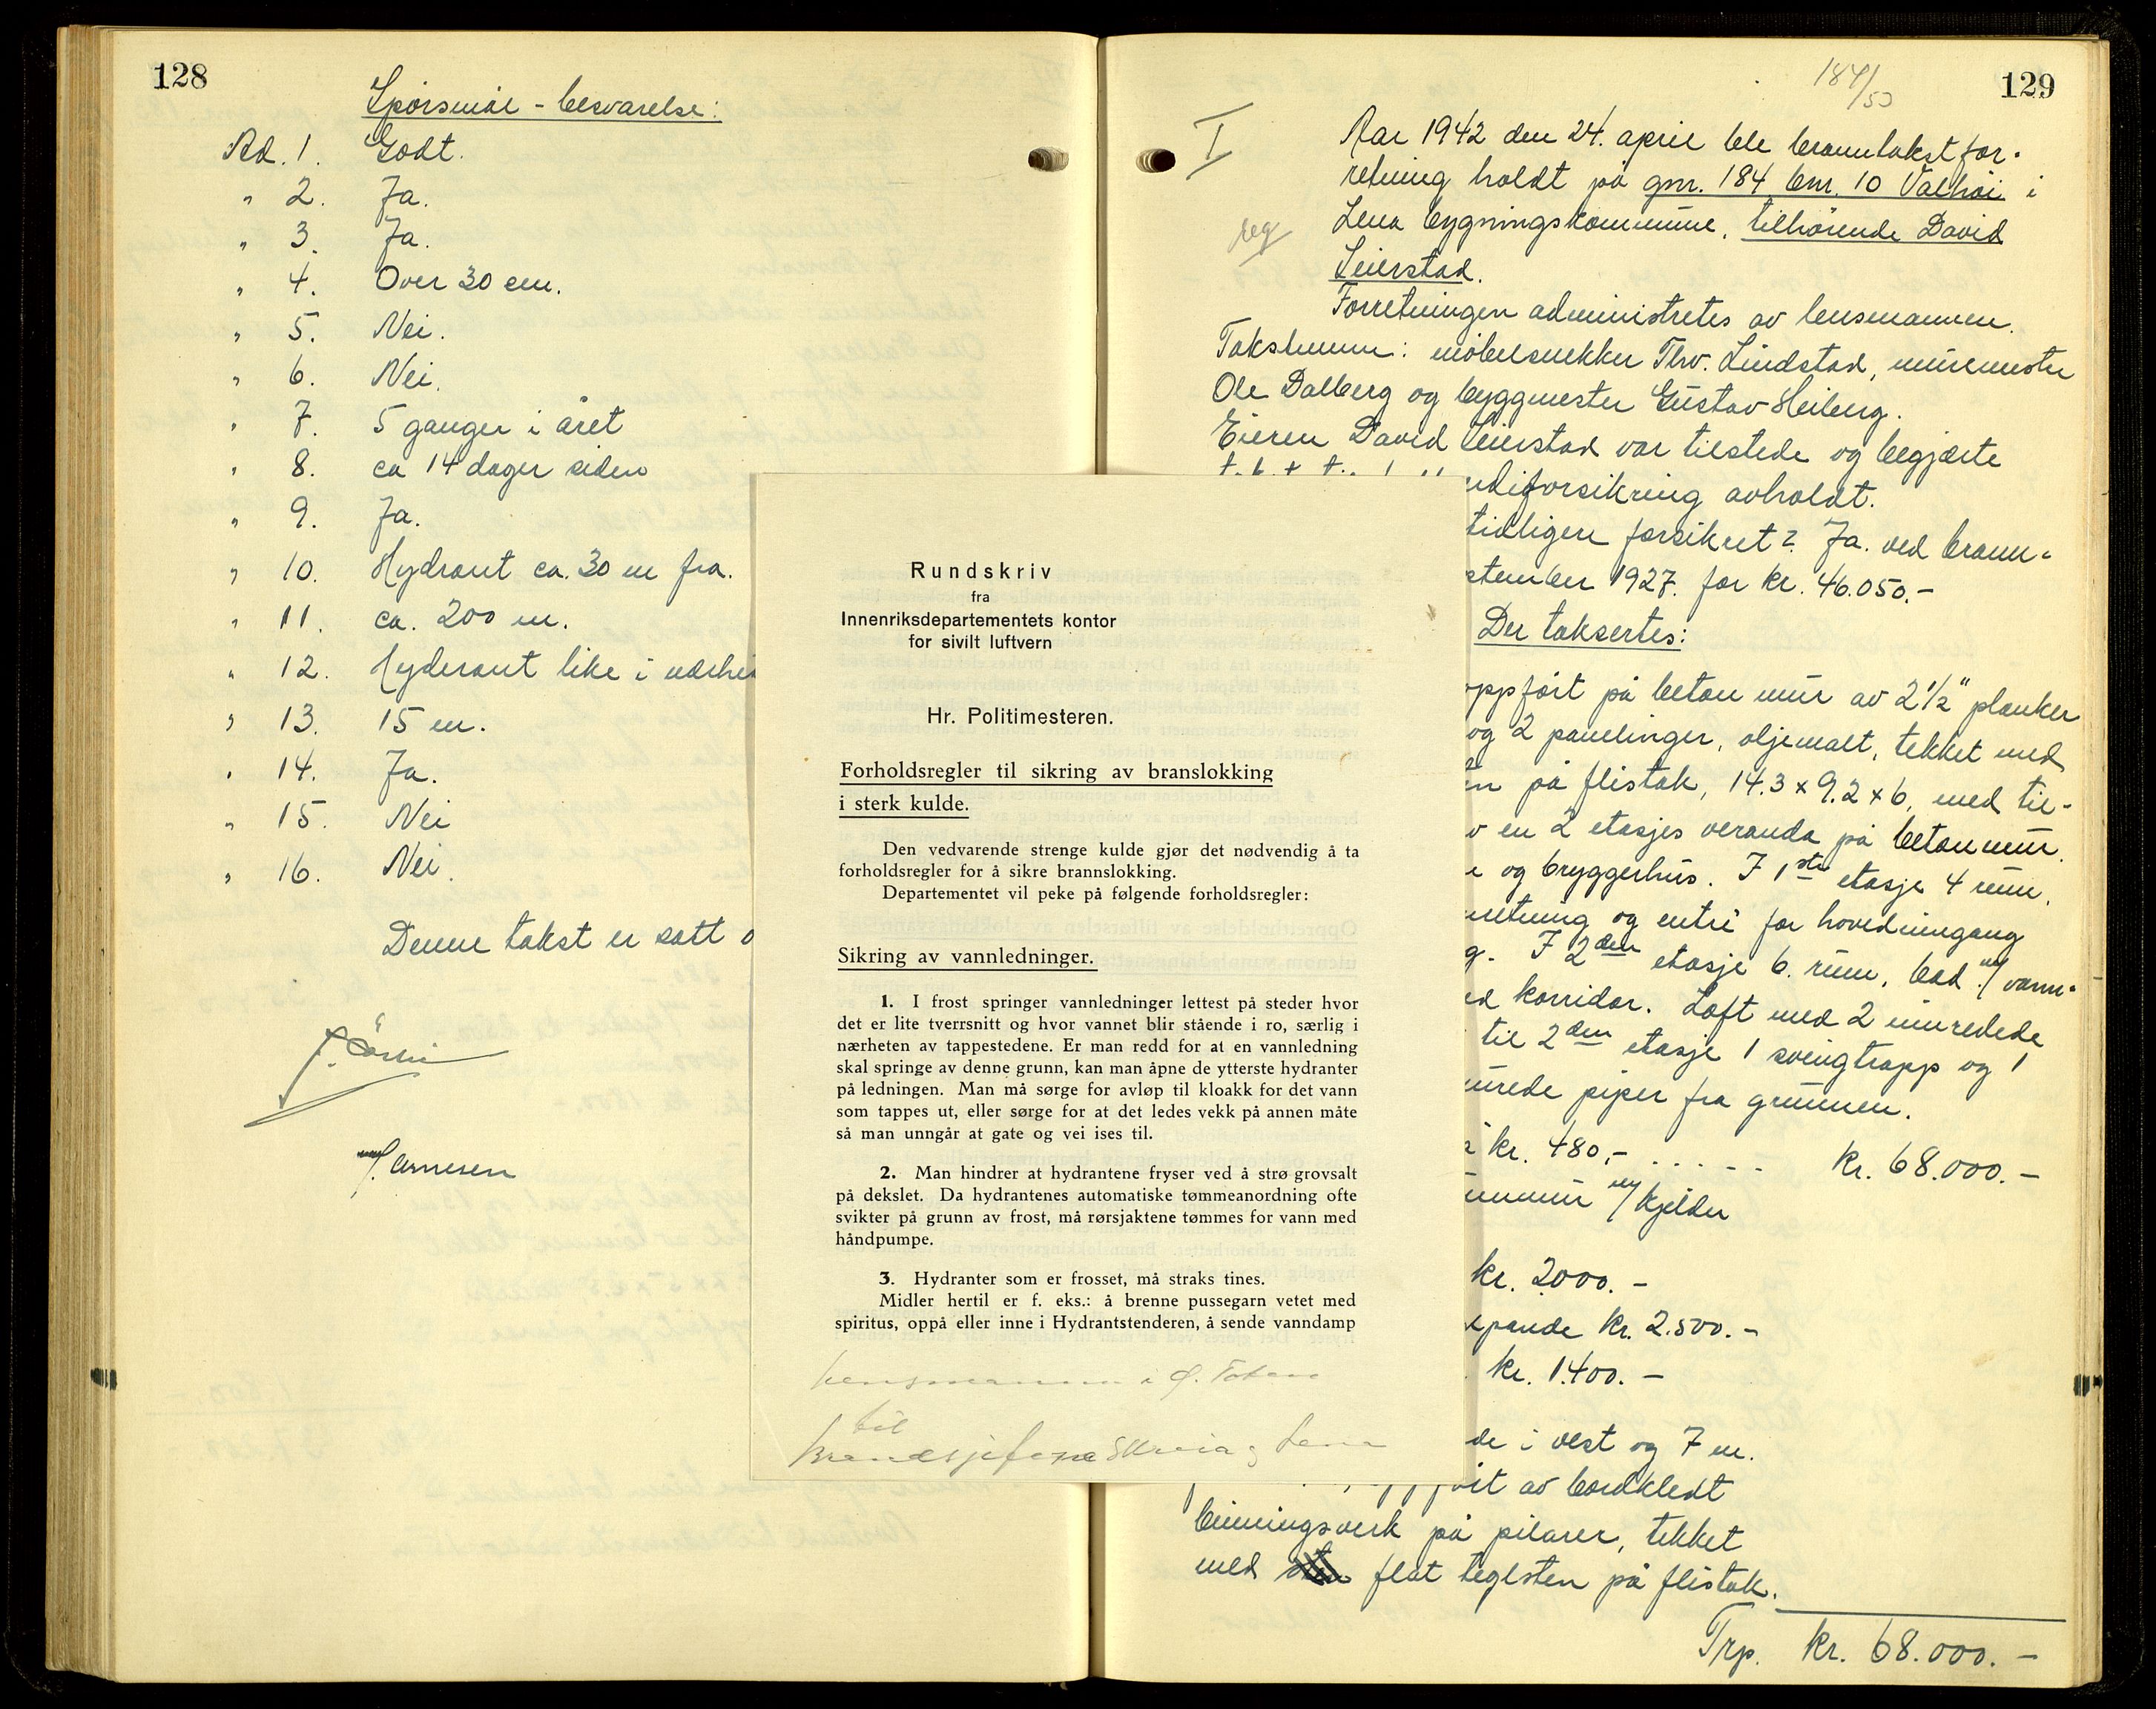 128
Spørsmål - besvarelse:
Ad. 1. Godt.
" 2. Ja.
" 3. Ja.
" 4. Over 30 cm.
" 5. Nei.
" 6. Nei.
" 7. 5 ganger i året
" 8. ca 14 dager siden
" 9. Ja.
" 10. Hydrant ca. 30 m fra.
" 11. ca. 200 m.
" 12. Hyderant like i
" 13. 15 m.
" 14. Ja.
" 15. Nei
" 16. Nei.
Denne takst er satt
Arnesen
Rundskriv
fra
Innenriksdepartementets kontor
for sivilt luftvern
Hr. Politimesteren.
Forholdsregler til sikring av branslokking
i sterk kulde.
Den vedvarende strenge kulde gjør det nødvendig å ta
forholdsregler for å sikre brannslokking.
Departementet vil peke på følgende forholdsregler:
Sikring av vannledninger.
1. I frost springer vannledninger lettest på steder hvor
det er lite tverrsnitt og hvor vannet blir stående i ro, særlig i
nærheten av tappestedene. Er man redd for at en vannledning
skal springe av denne grunn, kan man åpne de ytterste hydranter
på ledningen. Man må sørge for avløp til kloakk for det vann
som tappes ut, eller sørge for at det ledes vekk på annen måte
så man unngår at gate og vei ises til.
2. Man hindrer at hydrantene fryser ved å strø grovsalt
på dekslet. Da hydrantenes automatiske tømmeanordning ofte
svikter på grunn av frost, må rørsjaktene tømmes for vann med
håndpumpe.
3. Hydranter som er frosset, må straks tines.
Midler hertil er f. eks.: å brenne pussegarn vetet med
spiritus, oppå eller inne i Hydrantstenderen, å sende vanndamp
lensmannen i Ø. Toten
til
Brandsjefene Skreia og Lena
184/50
129
I
Aar 1942 den 24. april ble branntakstfor-
retning holdt på gnr. 184 bnr. 10 Valhøi i
Lena bygningskommune, tilhørende David
Seierstad.
Forretningen administretes av lensmannen.
Takstmenn: møbelsnekker Thv. Lindstad, muremester
Ole Dalberg og byggmester Gustav Heiberg.
Eieren David Seierstad var tilstede og begjærte
udiforsikring avholdt.
tidligere forsikret? Ja. ved brann-
ptember 1927. for kr. 46.050.-
Der taksertes:
oppført på beton mur av 2 1/2" planker
og 2 panelinger, oljemalt, tekket med
en på flistak, 14.3 x 9.2 x 6, med til-
v en 2 etasjes veranda på betonmur.
e og bryggerhus. I 1ste etasje 4 rum,
nretning og entré for hovedinngang
g. I 2den etasje 6 rum, bad m/ vann-
ed korridor. Loft med 2 innredede
til 2den etasje 1 svingtrapp og 1
murede piper fra grunnen.
à kr. 480,- . . . . . kr. 68.000.-
nnmur m/ kjelder
kr. 2000.-
kr. 2.500.-
kr. 1.400.-
de i vest og 7 m.
ørt av bordkledt
binningsverk på pilarer, tekket
med flat teglsten på flistak.
Trp. kr. 68.000.-